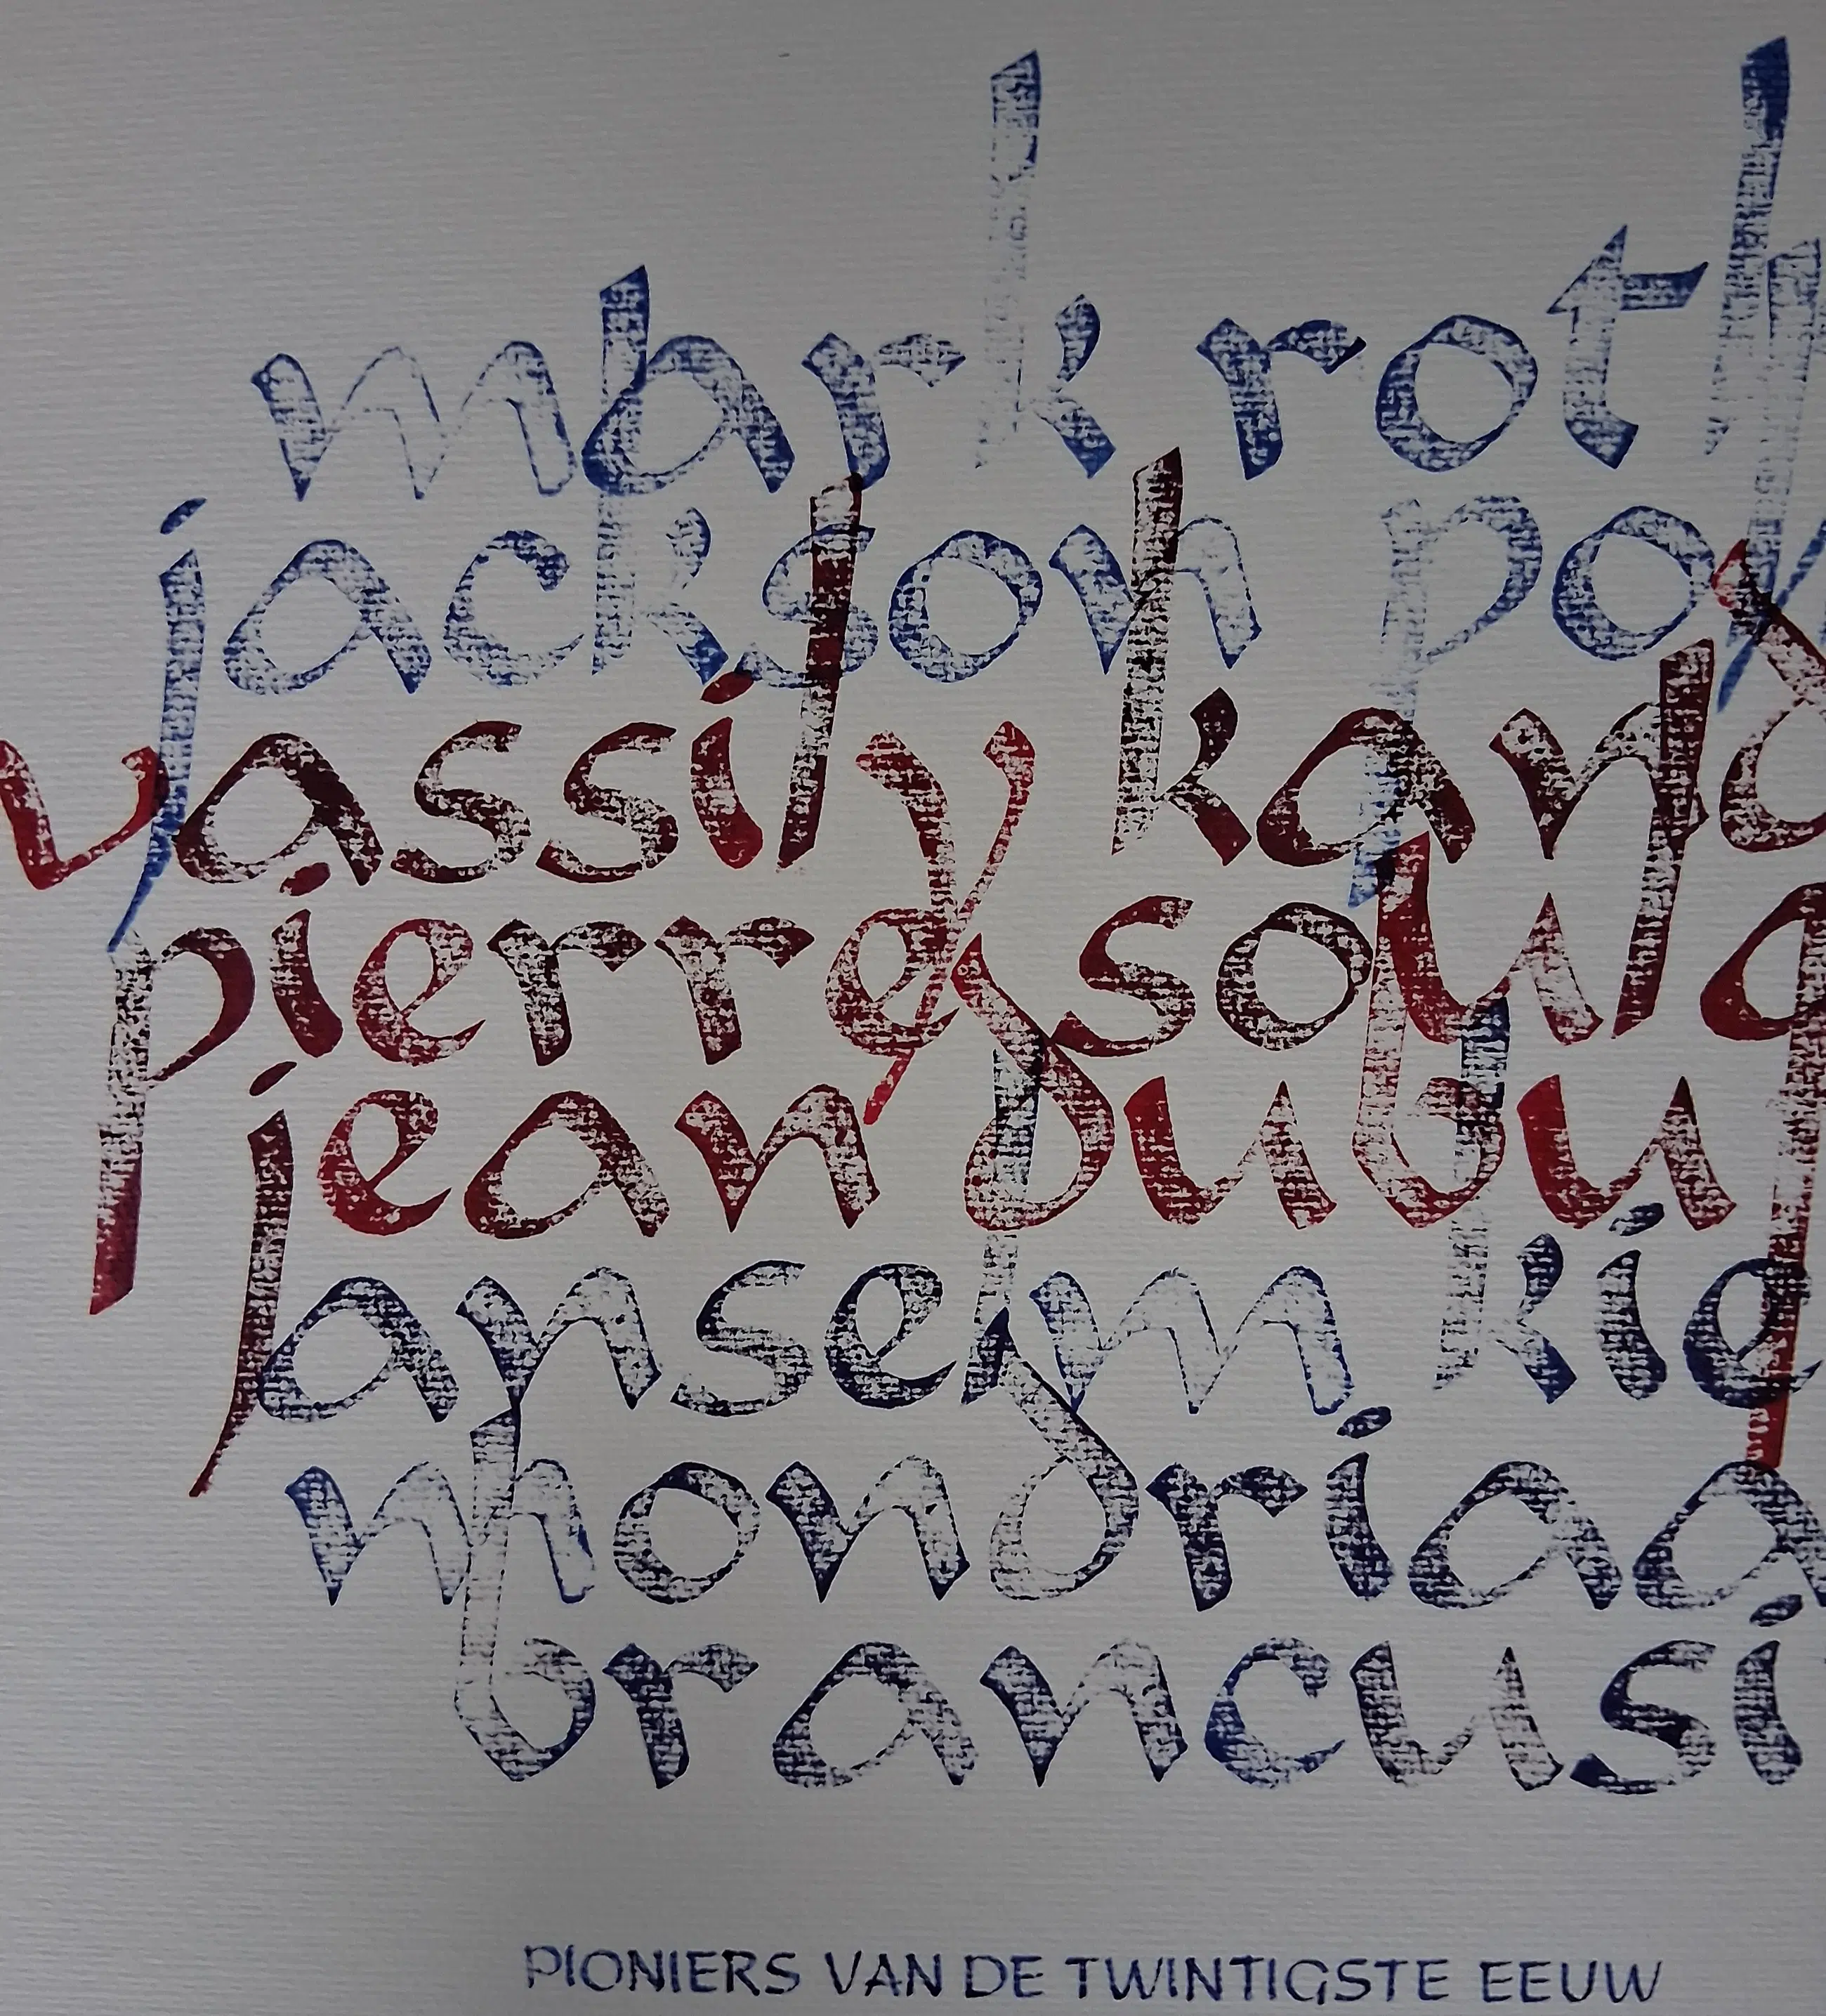 mark roth
jackson pol
vassily kand
pierre soula
jean dubu
anselm kie
mondriaa
brancusi
PIONIERS VAN DE TWINTIGSTE EEUW